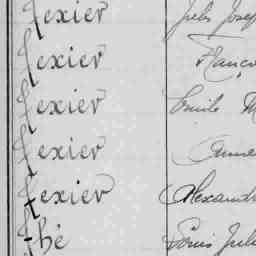 Texier Jules Josep
Texier Franço
Texier Emile M
Texier Anne
Texier Alexandr
Thé Louis Jule